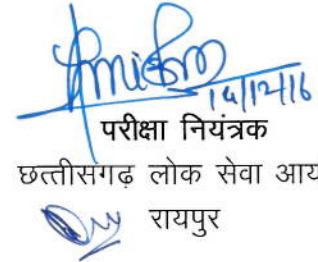 14/12/16
परीक्षा नियंत्रक
छत्तीसगढ़ लोक सेवा आय
रायपुर